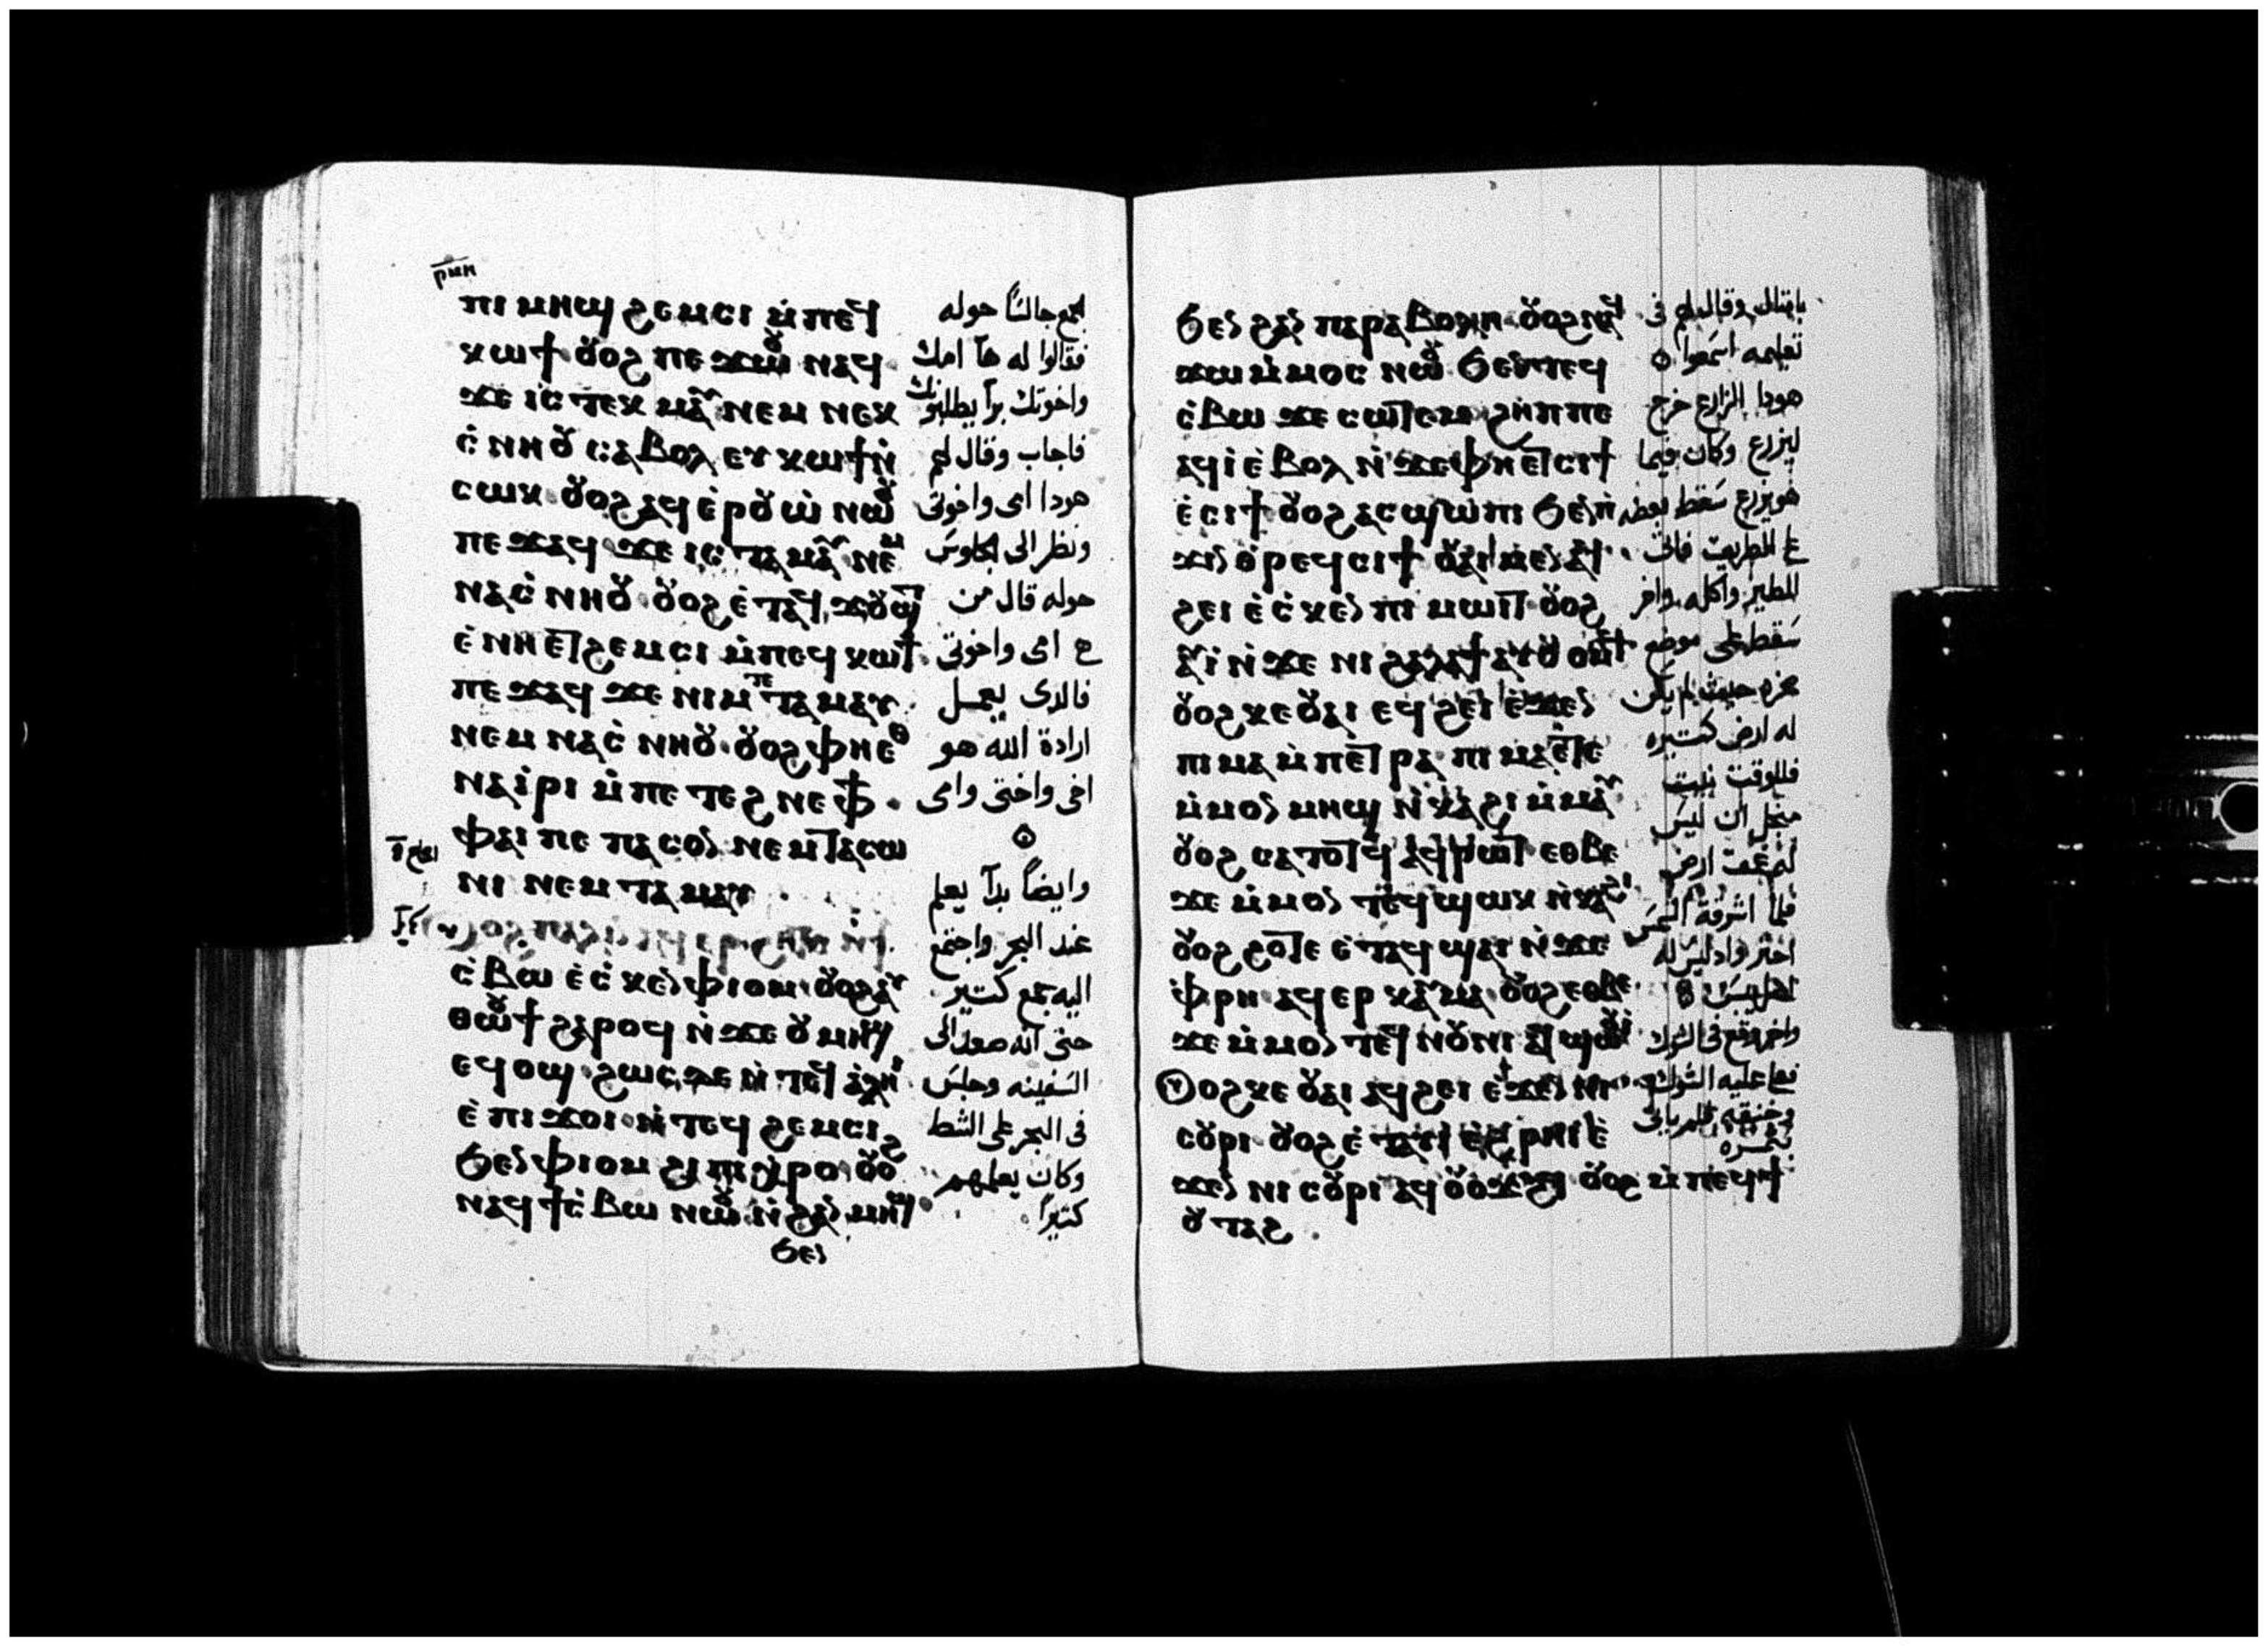 ⲣⲙⲏ
ⲡⲓ ⲙⲏϣ ϩⲉⲙⲥⲓ ⲙ̀ⲡⲉϥ
ⲕⲱϯ ⲟⲩⲟϩ ⲡⲉϫⲱⲟⲩ ⲛⲁϥ
ϫⲉ ⲓⲥ ⲧⲉⲕ ⲙⲁⲩ ⲛⲉⲙ ⲛⲉⲕ
ⲥ̀ⲛⲏⲟⲩ ⲥⲁⲃⲟⲗ ⲉⲩ ⲕⲱϯ ⲛ̀
ⲥⲱⲕ ⲟⲩⲟϩ ⲁϥ ⲉ̀ⲣⲟⲩⲱ̀ ⲛⲱⲟⲩ
ⲡⲉϫⲁϥ ϫⲉ ⲓⲥ ⲧⲁ ⲙⲁⲩ ⲛⲉⲙ
ⲛⲁⲥ̀ⲛⲏⲟⲩ ⲟⲩⲟϩ ⲉ̀ⲧⲁϥ ϫⲟⲩϣⲧ
ⲉ̀ⲛⲏⲉⲧϩⲉⲙⲥⲓ ⲙ̀ⲡⲉϥ ⲕⲱϯ
ⲡⲉϫⲁϥ ϫⲉ ⲛⲓⲙ ⲡⲉ ⲧⲁ ⲙⲁⲩ
ⲛⲉⲙ ⲛⲁⲥ̀ⲛⲏⲟⲩ ⲟⲩⲟϩ ⲫⲏⲉⲑ
ⲛⲁⲓ̀ⲣⲓ ⲙ̀ⲡⲉⲧⲉϩⲛⲉ ⲫϯ
ⲫⲁⲓ ⲡⲉ ⲡⲁⲥⲟⲛ ⲛⲉⲙ ⲧⲁⲥⲱ
ⲛⲓ ⲛⲉⲙ ⲧⲁ ⲙⲁⲩ
ⲥ̀ⲃⲱ ⲉ̀ⲥ̀ⲕⲉⲛ ⲫⲓⲟⲙ ⲟⲩⲟϩ ⲁⲩ
ⲑⲱⲟⲩϯ ϩⲁⲣⲟϥ ⲛ̀ϫⲉ ⲟⲩ ⲙⲏϣ
ⲉϥ ⲟϣ ϩⲱⲥ ⲇⲉ ⲛ̀ⲧⲉϥ ⲁ̀ⲗⲏⲓ̀
ⲉ̀ ⲡⲓ ϫⲟⲓ ⲛ̀ⲧⲉϥ ϩⲉⲙⲥⲓ
ϧⲉⲛ ⲫⲓⲟⲙ ϩⲓ ⲡⲓ ⲭⲣⲟ ⲟⲩⲟϩ
ⲛⲁϥ ϯⲥ̀ⲃⲱ ⲛⲱⲟⲩ ⲛ̀ϩⲁⲛ ⲙⲏϣ
ϧⲉⲛ
جمع جالساً حوله
فقالوا له هآ امك
واخوتك براً يطلبونك
فاجاب وقال لهم
هودا امى واخوتى
ونظر الى الجلوس
حوله قال من
هى امى واخوتى
فالدى يعمل
ارادة الله هو
اخى واختى وامى
وايضاً بدأ يعلم
عند البحر واجتمع
اليه جمع كتير
حتى انه صعد الى
السفينه وجلس
فى البحر على الشط
وكان يعلمهم
كتيراً
ϧⲉⲛ ϩⲁⲛ ⲡⲁⲣⲁⲃⲟⲗⲏ ⲟⲩⲟϩ ⲛⲁϥ
ϫⲱ ⲙ̀ⲙⲟⲥ ⲛⲱⲟⲩ ϧⲉⲛ ⲧⲉϥ
ⲥ̀ⲃⲱ ϫⲉ ⲥⲱⲧⲉⲙ ϩⲏⲡⲡⲉ
ⲁϥⲓ̀ ⲉ̀ⲃⲟⲗ ⲛ̀ϫⲉ ⲫⲏⲉⲧⲥⲓϯ
ⲉ̀ⲥⲓϯ ⲟⲩⲟϩ ⲁⲥϣⲱⲡⲓ ϧⲉⲛ ⲡ̀
ϫⲓⲛⲑⲣⲉϥⲥⲓϯ ⲟⲩⲁⲓ ⲙⲉⲛ ⲁϥ
ϩⲉⲓ ⲉ̀ⲥ̀ⲕⲉⲛ ⲡⲓ ⲙⲱⲓⲧ ⲟⲩⲟϩ
ⲁⲩⲓ̀ ⲛ̀ϫⲉ ⲛⲓ ϩⲁⲗⲁϯ ⲁⲩⲟⲩⲟⲙϥ
ⲟⲩⲟϩ ⲕⲉ ⲟⲩⲁⲓ ⲉϥϩⲉⲓ ⲉ̀ϫⲉⲛ
ⲡⲓ ⲙⲁ ⲙ̀ⲡⲉⲧⲣⲁ ⲡⲓ ⲙⲁ ⲉⲧⲉ
ⲙ̀ⲙⲟⲛ ⲙⲏϣ ⲛ̀ⲕⲁϩⲓ ⲙ̀ⲙⲁⲩ
ⲟⲩⲟϩ ⲥⲁⲧⲟⲧϥ ⲁϥⲣⲱⲧ ⲉⲑⲃⲉ
ϫⲉ ⲙ̀ⲙⲟⲛ ⲧⲉϥ ϣⲱⲕ ⲛ̀ⲕⲁϩⲓ
ⲟⲩⲟϩ ϩⲟⲧⲉ ⲉ̀ⲧⲁϥ ϣⲁⲓ ⲛ̀ϫⲉ
ⲫ̀ⲣⲏ ⲁϥⲉⲣ ⲕⲁⲩⲙⲁ ⲟⲩⲟϩ ⲉⲑⲃⲉ
ϫⲉ ⲙ̀ⲙⲟⲛ ⲧⲉϥ ⲛⲟⲩⲛⲓ ⲁϥ ϣⲱⲟⲩⲓ̀
ⲟⲩⲟϩ ⲕⲉ ⲟⲩⲁⲓ ⲁϥϩⲉⲓ ⲉ̀ϫⲉⲛ ⲛⲓ
ⲥⲟⲩⲣⲓ ⲟⲩⲟϩ ⲉ̀ⲧⲁⲩⲓ̀ ⲉ̀ϩⲣⲏⲓ ⲉ̀
ϫⲉⲛ ⲛⲓ ⲥⲟⲩⲣⲓ ⲁϥ ⲟⲩⲟϫϩϥ ⲟⲩⲟϩ ⲙ̀ⲡⲉϥϯ
ⲟⲩⲧⲁϩ
بامتال وقال لهم فى
تعليمه اسمعوا
هودا الزارع خرج
ليزرع وكان فيما
هو يزرع سقط بعضه
على الطريق فاتى
الطير واكله واخر
سقط على موضع
صخره حيث لم يكن
له ارض كتيره
فللوقت نبت
من اجل ان ليس
له عمق ارض
فلما اشرقة الشمس
احتر واد ليس له
اصل يبس
واخر وقع فى الشوك
فعلا عليه الشوك
وخنقه فلم ياتى
بثمره